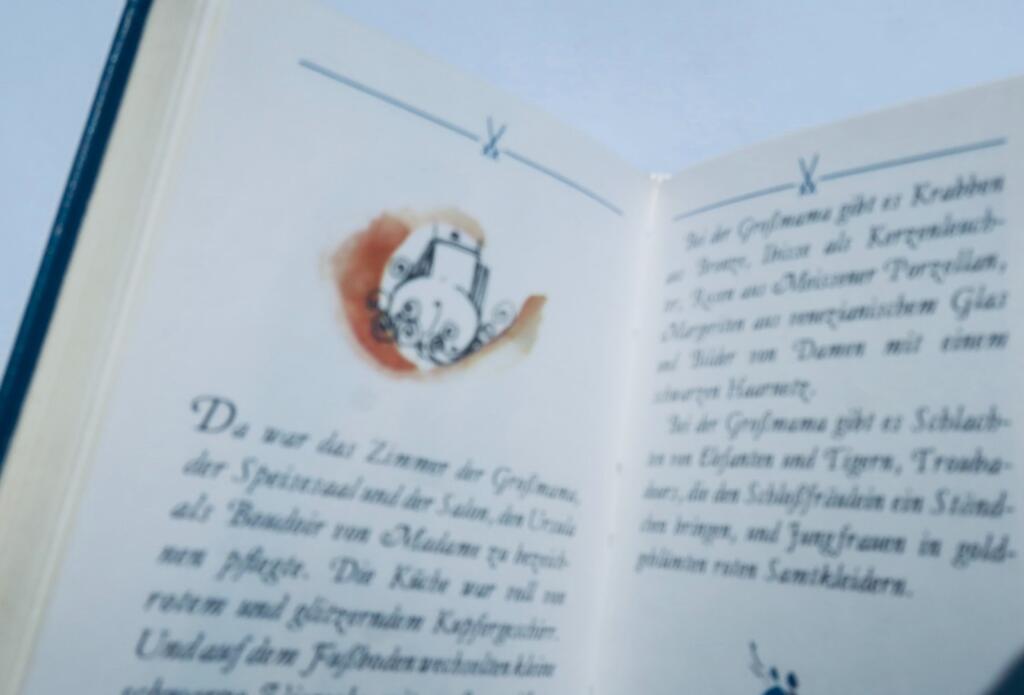 Da war das Zimmer der Großmama,
der Speisesaal und der Salon, den Ursula
als Boudoir von Madame zu bezeich-
nen pflegte. Die Küche war voll von
rotem und glitzerndem Kupfergeschirr.
Und auf dem Fußboden wechselten kleine
schwarze
Bei der Großmama gibt es Krabben
aus Bronze, Ibisse als Kerzenleuch-
ter, Rosen aus Meissener Porzellan,
Margeriten aus venezianischem Glas
und Bilder von Damen mit einem
schwarzen Haarnetz.
Bei der Großmama gibt es Schlach-
ten von Elefanten und Tigern, Trouba-
dours, die den Schloßfräulein ein Ständ-
chen bringen, und Jungfrauen in gold-
geblümten roten Samtkleidern.